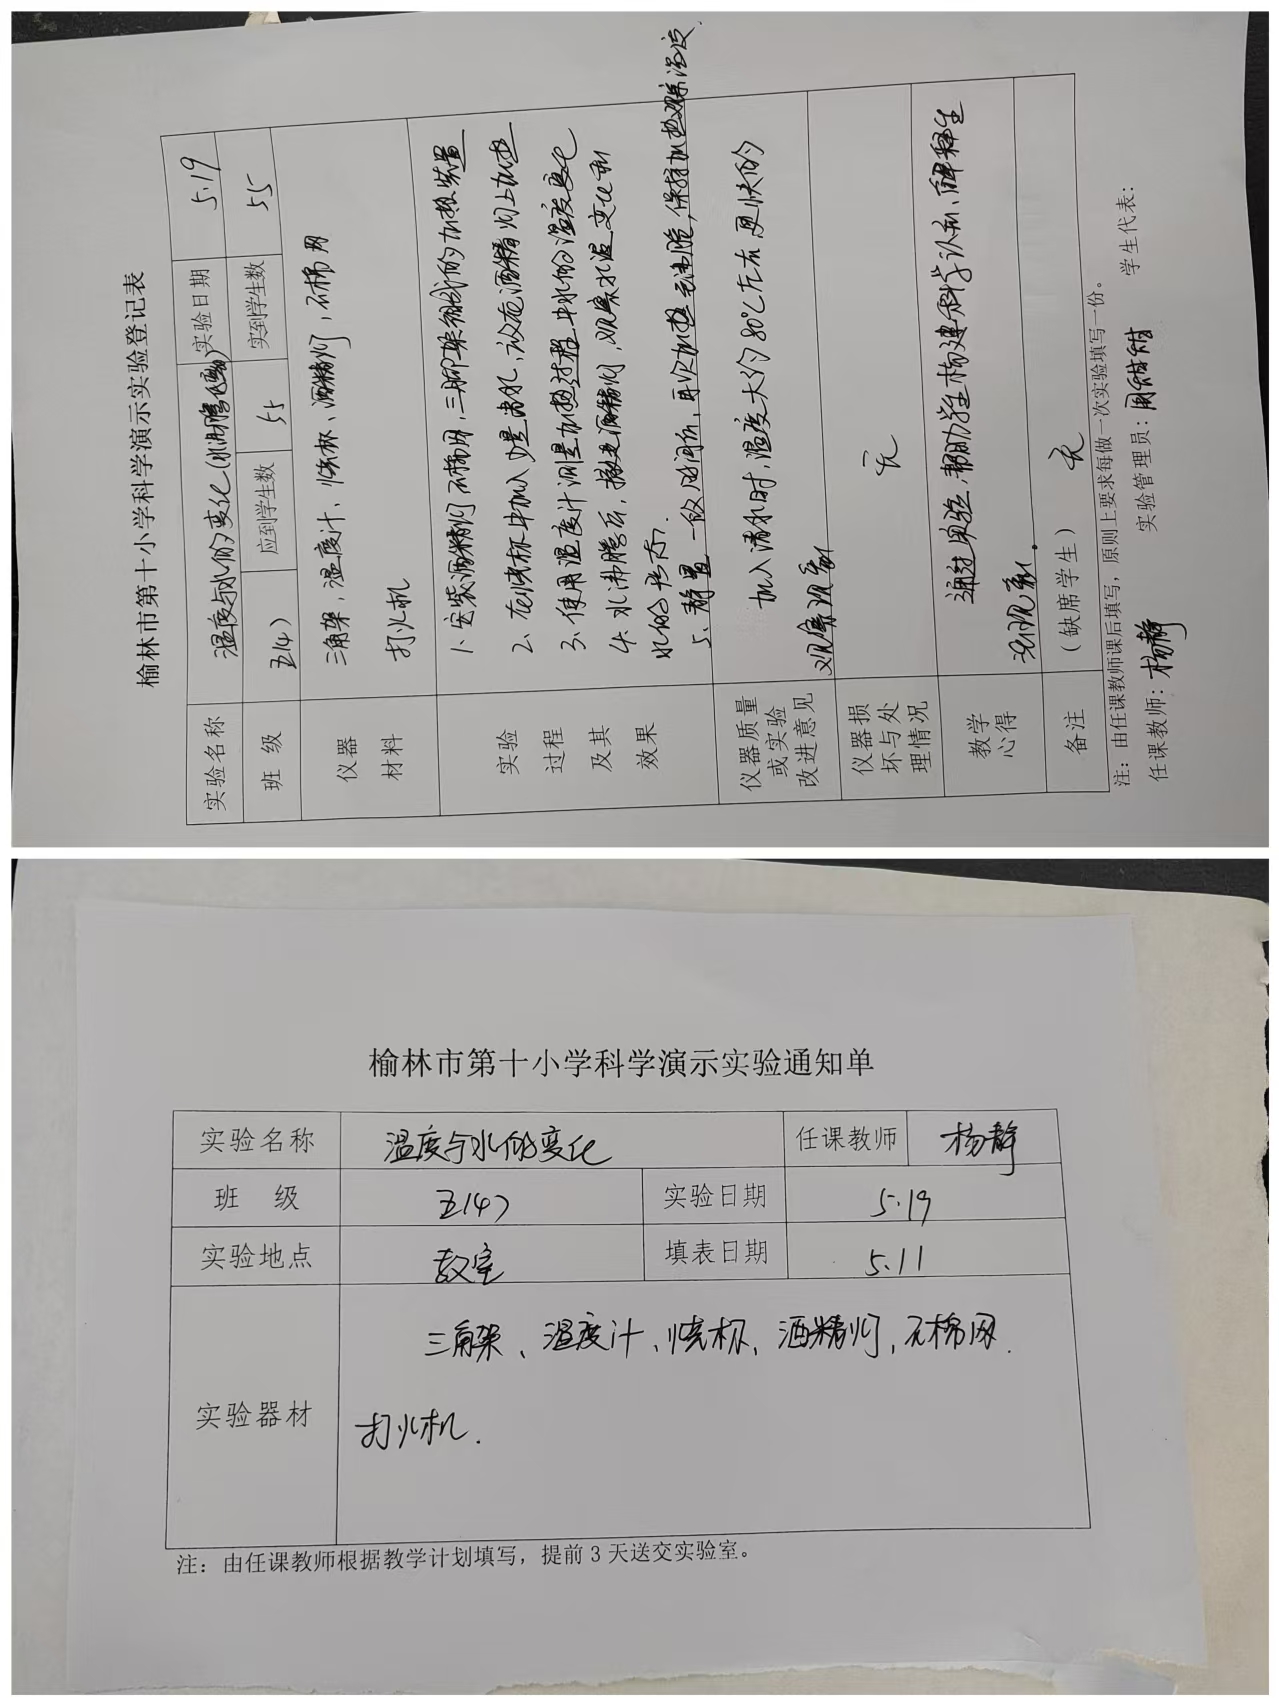 榆林市第十小学科学演示实验登记表
实验名称 温度与水的变化(水沸腾 实验日期 5.19
班 级 五(4) 应到学生数 55 实到学生数 55
仪器 材料 三角架,温度计,烧杯、酒精灯,石棉网
打火机
实验 过程 及其 效果 1、安装酒精灯石棉网,三脚架组成的加热装置
2、在烧杯中加入少量清水,放在酒精灯上加热
3、使用温度计测量加热过程中水的温度变化
4、水沸腾后,撤走酒精灯,观察水温变化和
水的状态.
5、静置一段时间后,再次加热至沸腾,保持加热观察温度.
仪器质量 或实验 改进意见 加入清水时,温度大约80℃左右更快的
观察现象
仪器损 坏与处 理情况 无
教学 心得 通过实验,帮助学生构建科学认知,解释生
活现象.
备注 (缺席学生) 无
注:由任课教师课后填写,原则上要求每做一次实验填写一份。
任课教师:杨静 实验管理员: 学生代表:
榆林市第十小学科学演示实验通知单
实验名称 温度与水的变化 任课教师 杨静
班 级 五(4) 实验日期 5.19
实验地点 教室 填表日期 5.11
实验器材 三角架、温度计、烧杯、酒精灯,石棉网.
打火机.
注:由任课教师根据教学计划填写,提前 3 天送交实验室。